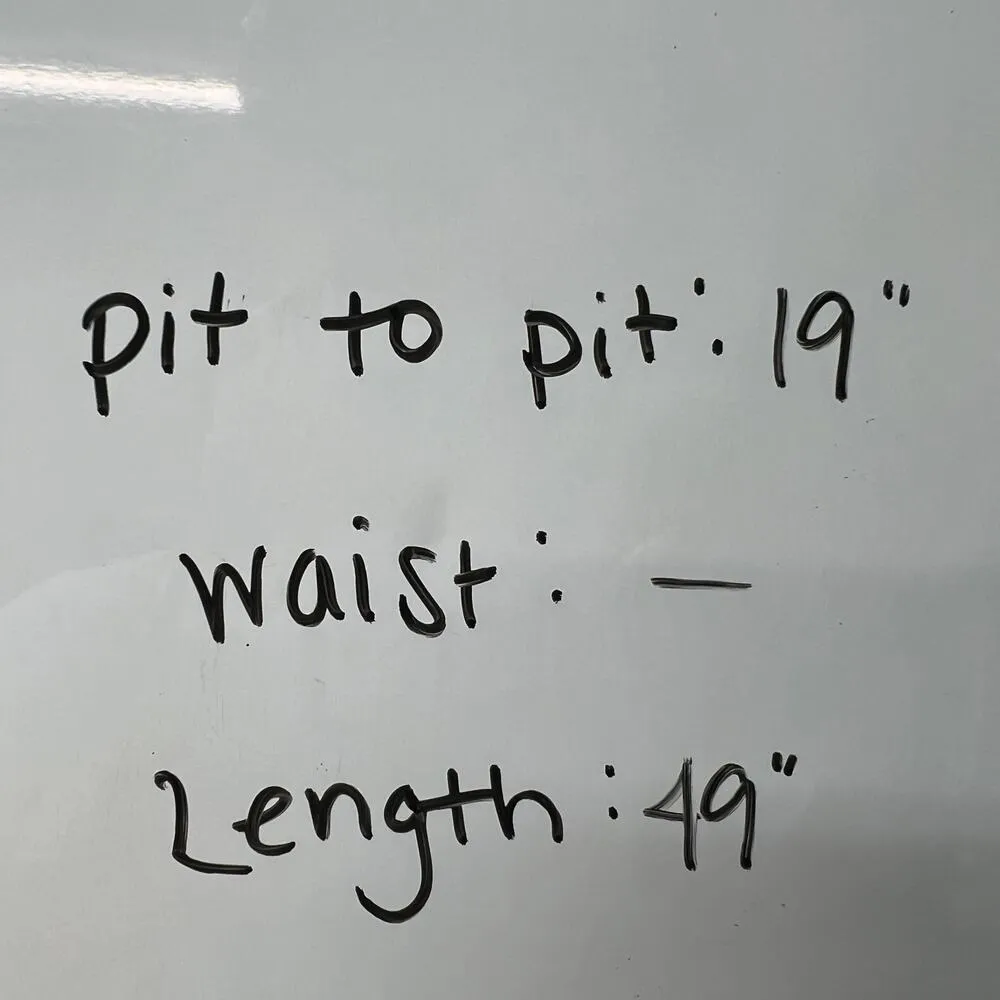 pit to pit: 19"
waist: —
Length: 49"